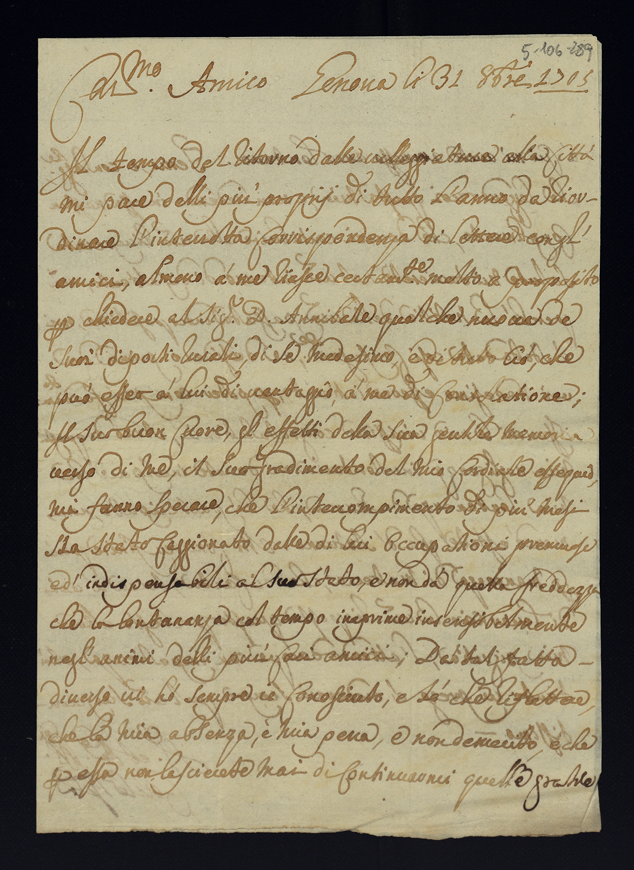 5-106-189
Car.mo Amico Genova li 31 8bre 1705
Il tempo del ritorno dalle villeggiature alla Città
mi pare delli più proprij di tutto l'anno da rior-
dinare l'interrotta corrispondenza di lettere con gl'
amici, almeno à me riesce certam.te molto a proposito
p chiedere al Sig.r D. Annibale qualche nuova de
suoi diporti rurali di sè medesimo, e di tutto ciò, che
può esser à lui di vantaggio, à me di consolatione;
Il suo buon cuore, gl'effetti della sua gentile memoria
verso di me, il suo gradimento del mio cordiale ossequio,
mi fanno sperare, che l'interrompimento di più mesi
sia stato caggionato dalle di lui occupationi premurose
ed indispensabili al suo stato, e non dà quella freddezza
che la lontananza col tempo imprime insensibilmente
negl'animi delli più cari amici; Da tal fatta
diverso vi hò sempre conosciuto, e sò che riflettete,
che la mia absenza, è mia pena, e non demerito, e che
p essa non lascierete mai di continuarmi quelle gratie